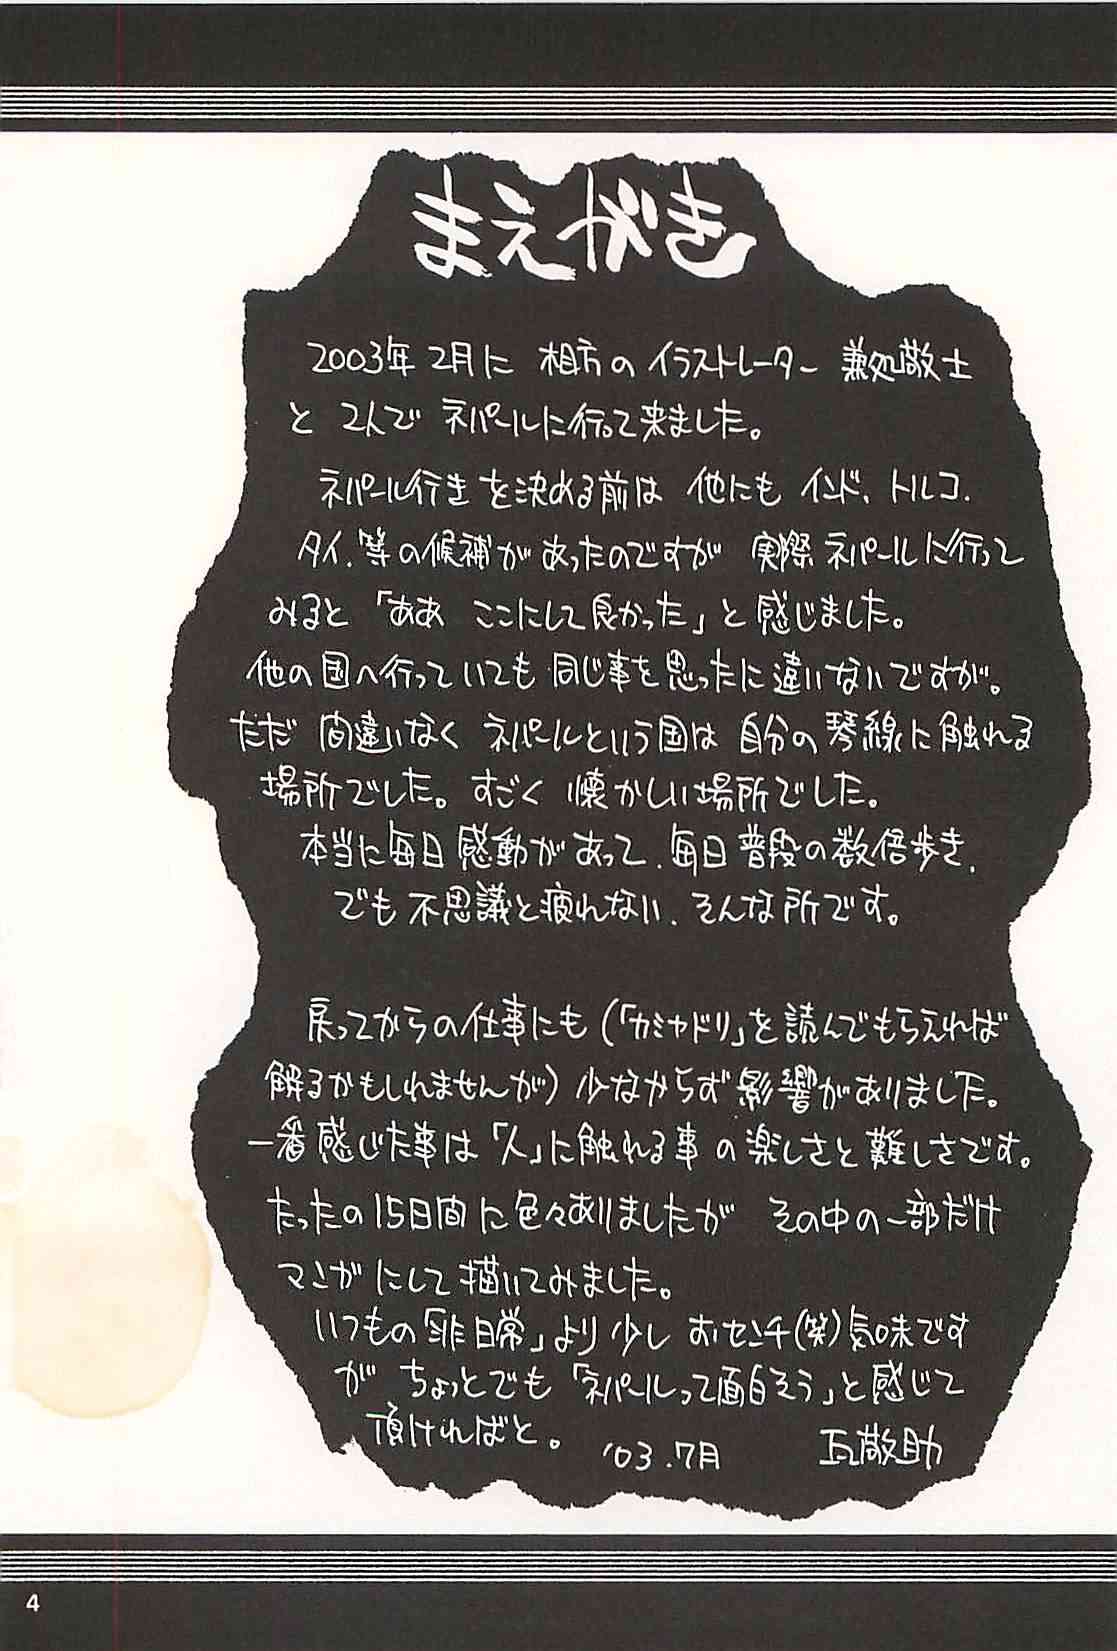 まえがき
2003年2月に 相方のイラストレーター 兼処敬士
と 2人で ネパールに行って来ました。
ネパール行きを決める前は 他にも インド、トルコ、
タイ、等の候補があったのですが 実際ネパールに行って
みると「ああ ここにして良かった」と感じました。
他の国へ行っていても同じ事を思ったに違いないですが。
ただ 間違いなく ネパールという国は 自分の琴線に触れる
場所でした。すごく 懐かしい場所でした。
本当に毎日感動があって、毎日普段の数倍歩き、
でも不思議と疲れない、そんな所です。
戻ってからの仕事にも(「カミヤドリ」を読んでもらえれば
解るかもしれませんが)少なからず影響がありました。
一番感じた事は「人」に触れる事の楽しさと難しさです。
たったの15日間に色々ありましたが その中の一部だけ
マンガにして描いてみました。
いつもの「非日常」より少し おセンチ(笑)気味です
が ちょっとでも「ネパールって面白そう」と感じて
頂ければと。 '03.7月 瓦敬助
4